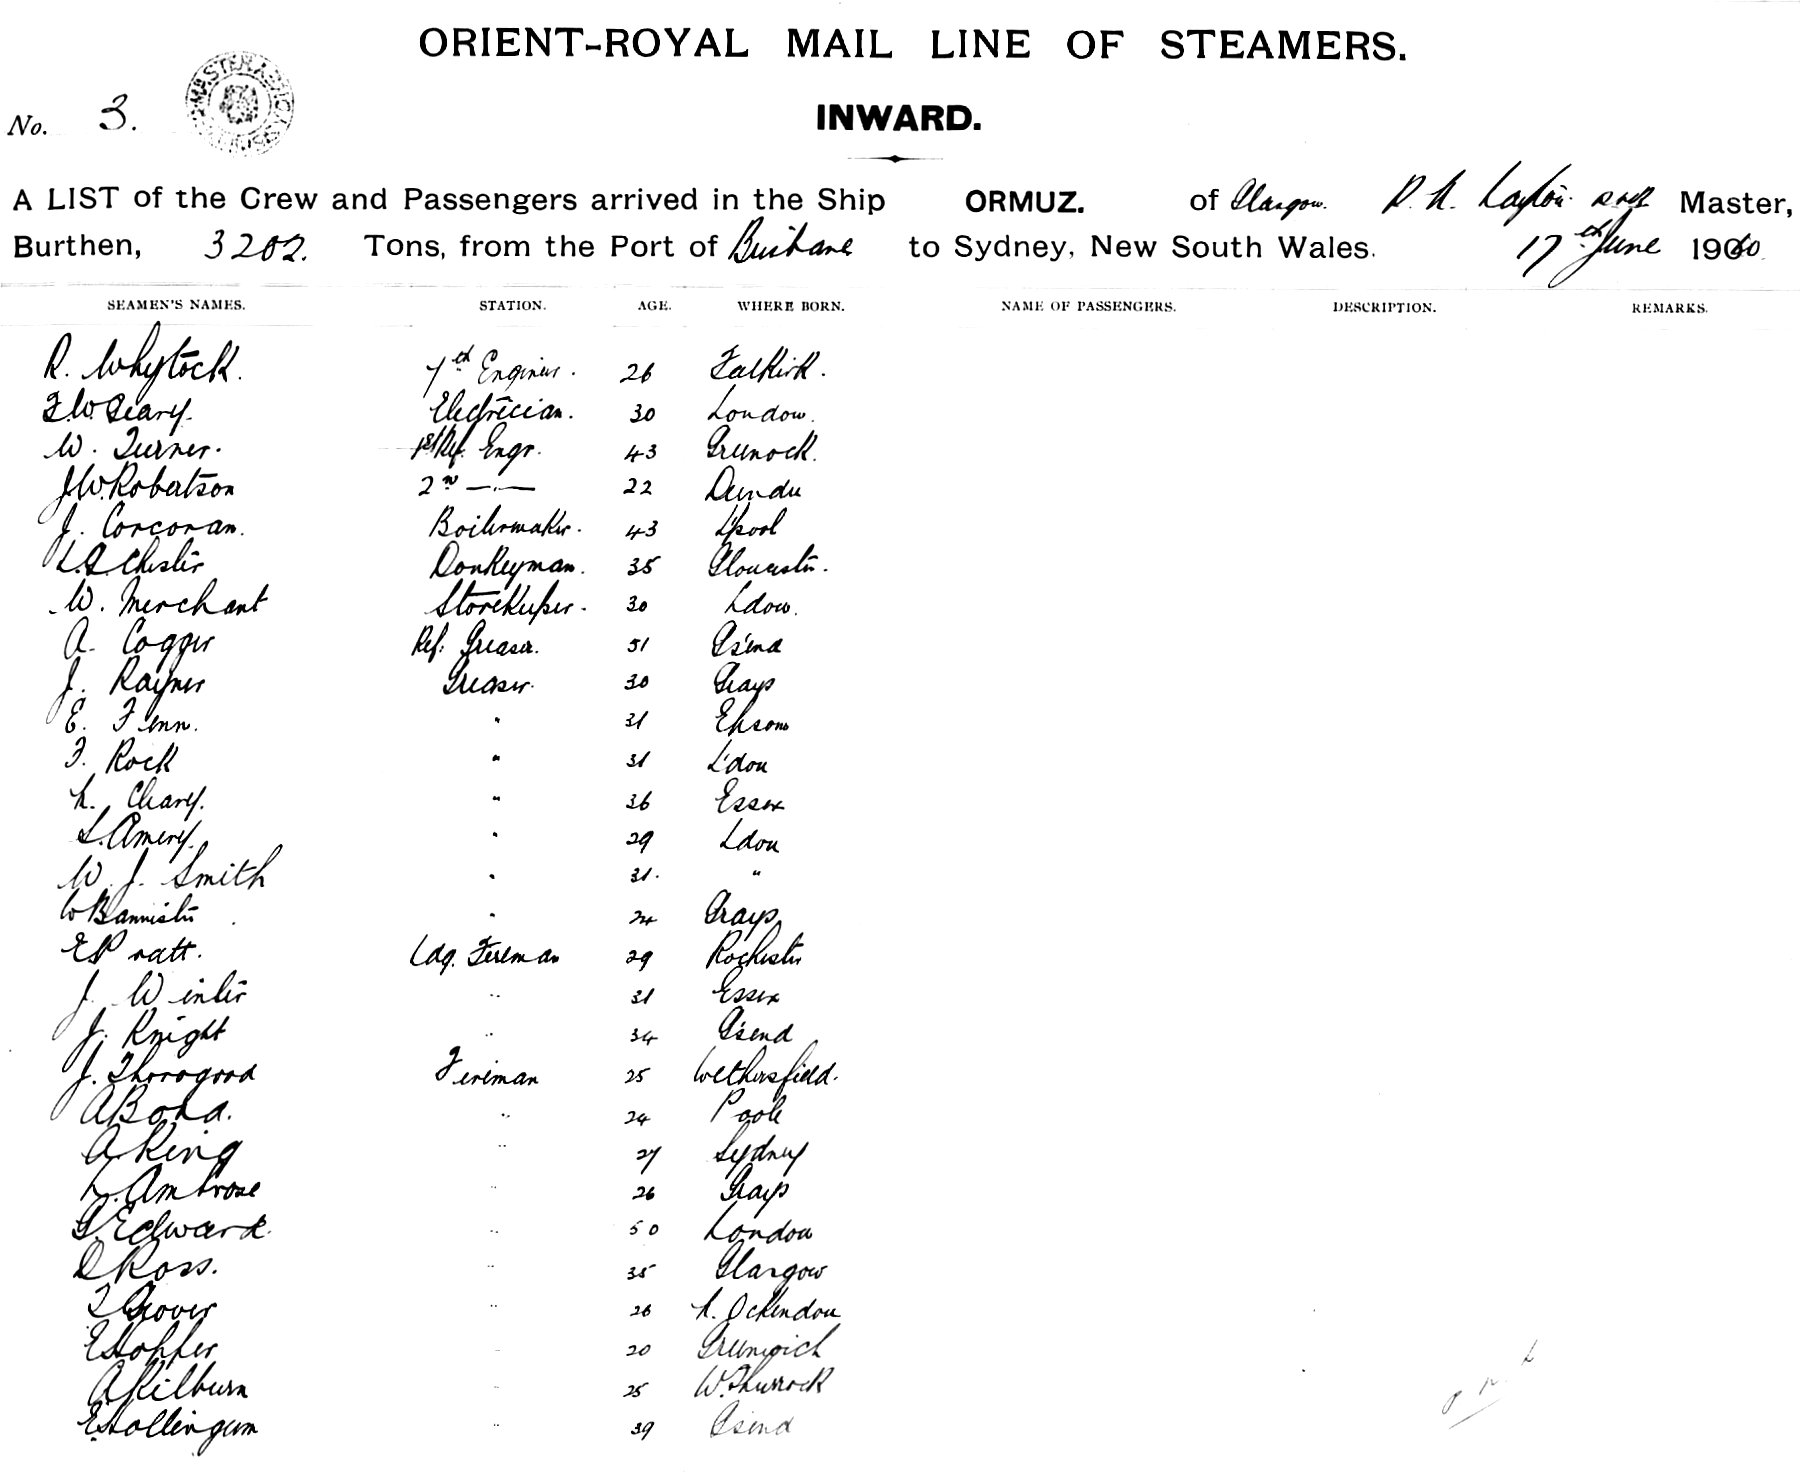 ORIENT-ROYAL MAIL LINE OF STEAMERS.
No. 3.
INWARD.
A LIST of the Crew and Passengers arrived in the Ship ORMUZ. of Glasgow. Master,
Burthen, 3202. Tons, from the Port of Brisbane to Sydney, New South Wales. 17th June 190
SEAMEN'S NAMES. STATION. AGE. WHERE BORN. NAME OF PASSENGERS. DESCRIPTION. REMARKS.
R. Whytock. 7th Engineer. 26 Falkirk.
F.W. Geary. Electrician. 30 London.
W. Turner. 1st Ref. Engr. 43 Greenock.
J.W. Robertson 2nd —.— 22 Dundee
J. Corcoran. Boilermaker. 43 L'pool
Chester Donkeyman. 35 Gloucester.
W. Merchant Storekeeper. 30 Ldon.
A. Cogger Ref. Greaser. 51 G'send
J. Rayner Greaser. 30 Grays
E. Fenn. " 31 Epsom
F. Rock " 31 L'don
Cleary. " 36 Essex
S. Amery. " 29 Ldon
W. J. Smith " 31. "
W Bannister " 24 Grays
E Pratt. Ldg. Fireman 29 Rochester
J. Winter " 31 Essex
J. Knight " 34 G'send
J. Thorogood Fireman 25 Wethersfield.
A Bond. " 24 Poole
A King " 27 Sydney
Ambrose " 26 Grays
G. Edward " 50 London
D Ross. " 35 Glasgow
T Grover " 26 Ockendon
E Hopper " 20 Greenwich
A Kilburn " 25 W. Thurrock
E Hollingum " 39 G'send